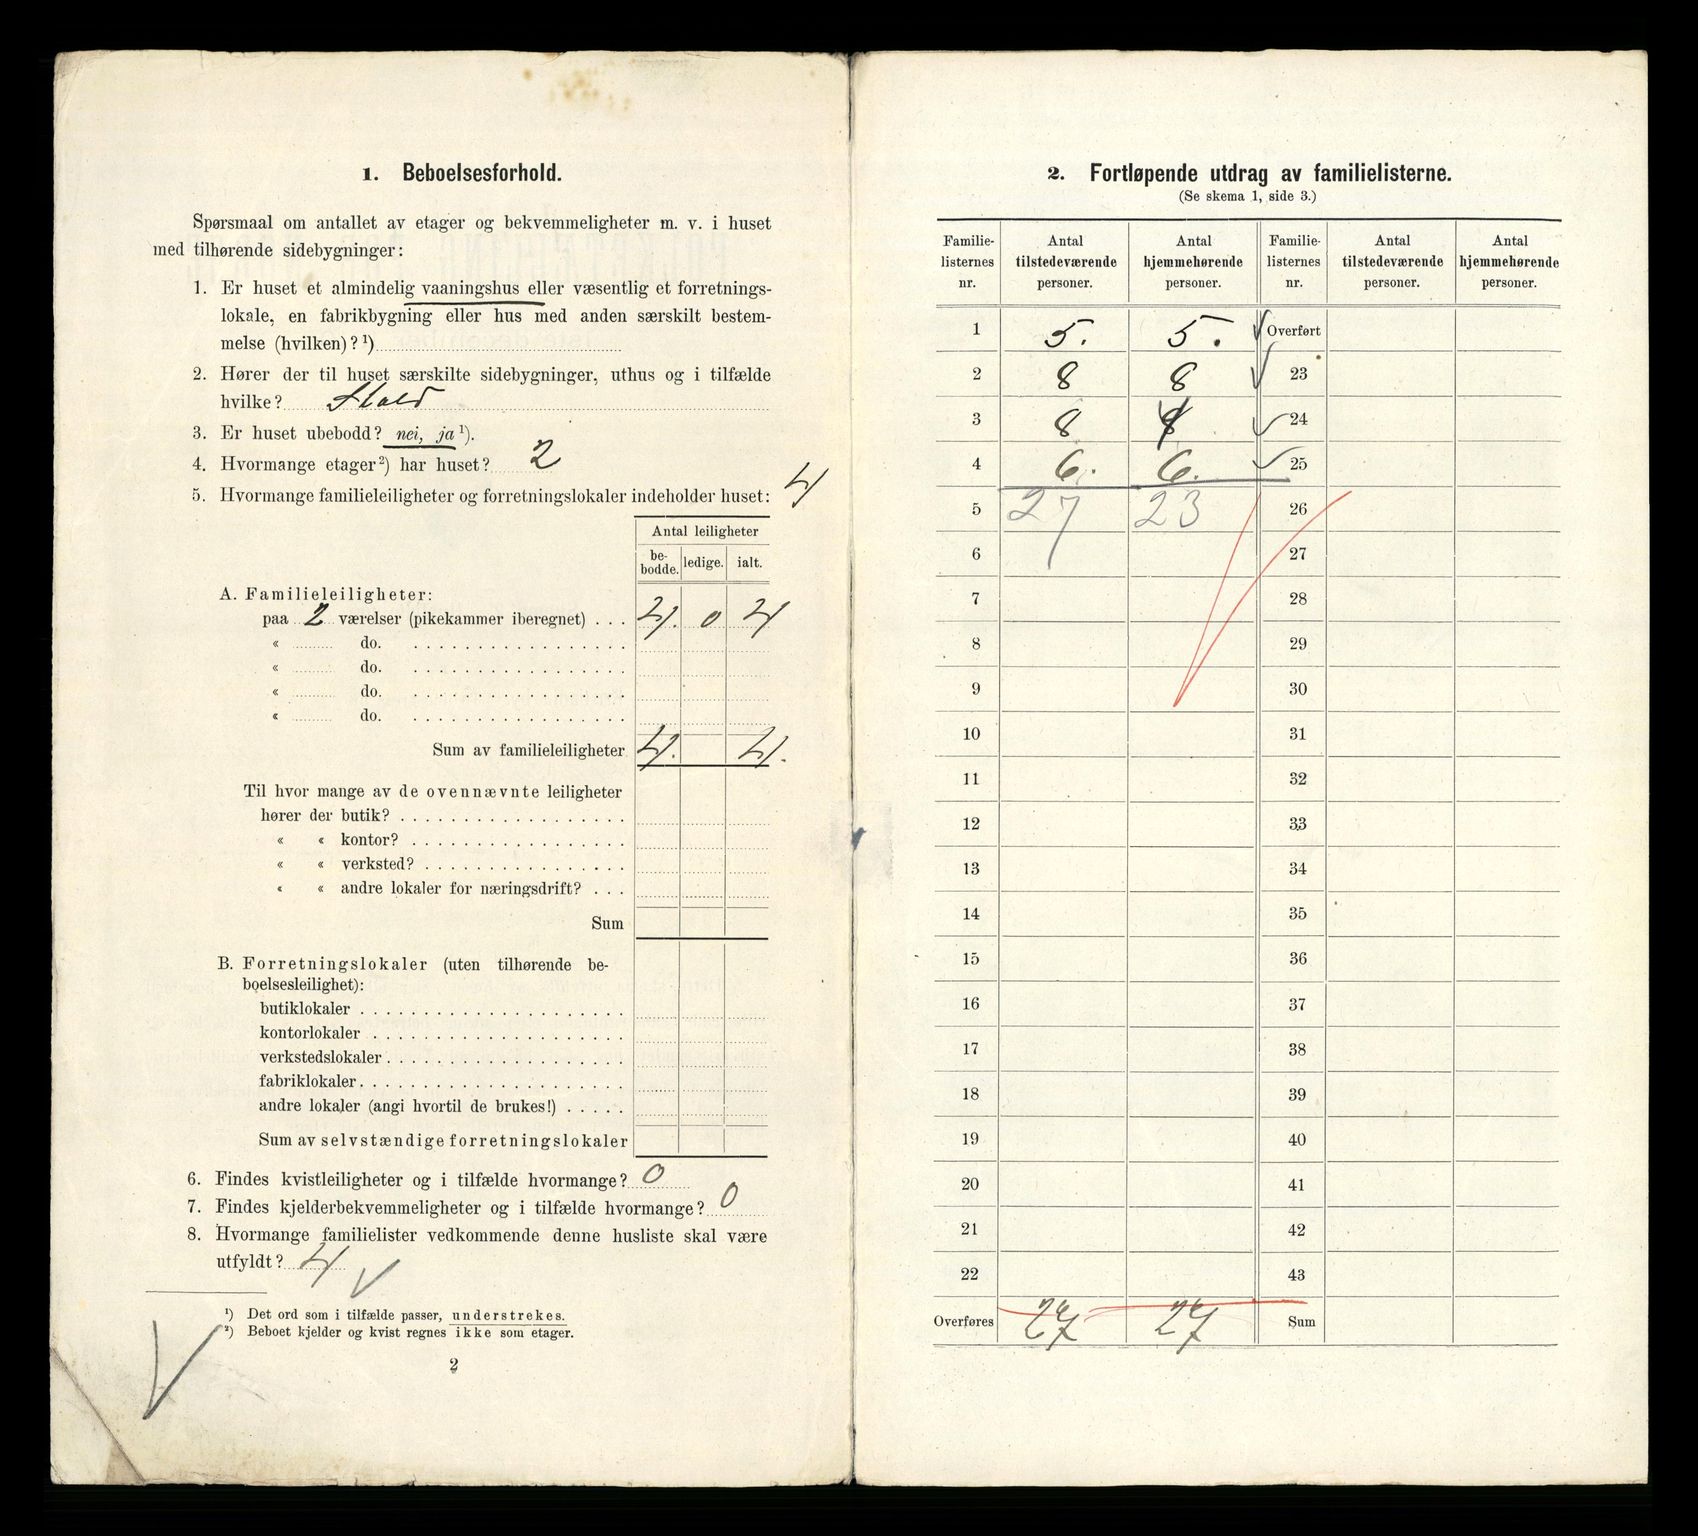 1. Beboelsesforhold.
Spørsmaal om antallet av etager og bekvemmeligheter m. v. i huset
med tilhørende sidebygninger:
1. Er huset et almindelig vaaningshus eller væsentlig et forretnings-
lokale, en fabrikbygning eller hus med anden særskilt bestem-
melse (hvilken)? ¹)
2. Hører der til huset særskilte sidebygninger, uthus og i tilfælde
hvilke? Stald
3. Er huset ubebodd? nei, ja ¹).
4. Hvormange etager ²) har huset? 2
5. Hvormange familieleiligheter og forretningslokaler indeholder huset: 4
Antal leiligheter
be-bodde. ledige. ialt.
A. Familieleiligheter:
paa 2 værelser (pikekammer iberegnet) . . . 4. 0 4
« do.
« do.
« do.
« do.
Sum av familieleiligheter 4. 4.
Til hvor mange av de ovennævnte leiligheter
hører der butik?
« « kontor?
« « verksted?
« « andre lokaler for næringsdrift? . . .
Sum
B. Forretningslokaler (uten tilhørende be-
boelsesleilighet):
butiklokaler
kontorlokaler
verkstedslokaler
fabriklokaler
andre lokaler (angi hvortil de brukes!)
Sum av selvstændige forretningslokaler
6. Findes kvistleiligheter og i tilfælde hvormange? 0
7. Findes kjelderbekvemmeligheter og i tilfælde hvormange? 0
8. Hvormange familielister vedkommende denne husliste skal være
utfyldt? 4
¹) Det ord som i tilfælde passer, understrekes.
²) Beboet kjelder og kvist regnes ikke som etager.
2
2. Fortløpende utdrag av familielisterne.
(Se skema 1, side 3.)
Familie-listernes nr. Antal tilstedeværende personer. Antal hjemmehørende personer. Familie-listernes nr. Antal tilstedeværende personer. Antal hjemmehørende personer.
1 5. 5. Overført
2 8 8 23
3 8 8 24
4 6. 6. 25
5 27 23 26
6 27
7 28
8 29
9 30
10 31
11 32
12 33
13 34
14 35
15 36
16 37
17 38
18 39
19 40
20 41
21 42
22 43
Overføres 27 27 Sum